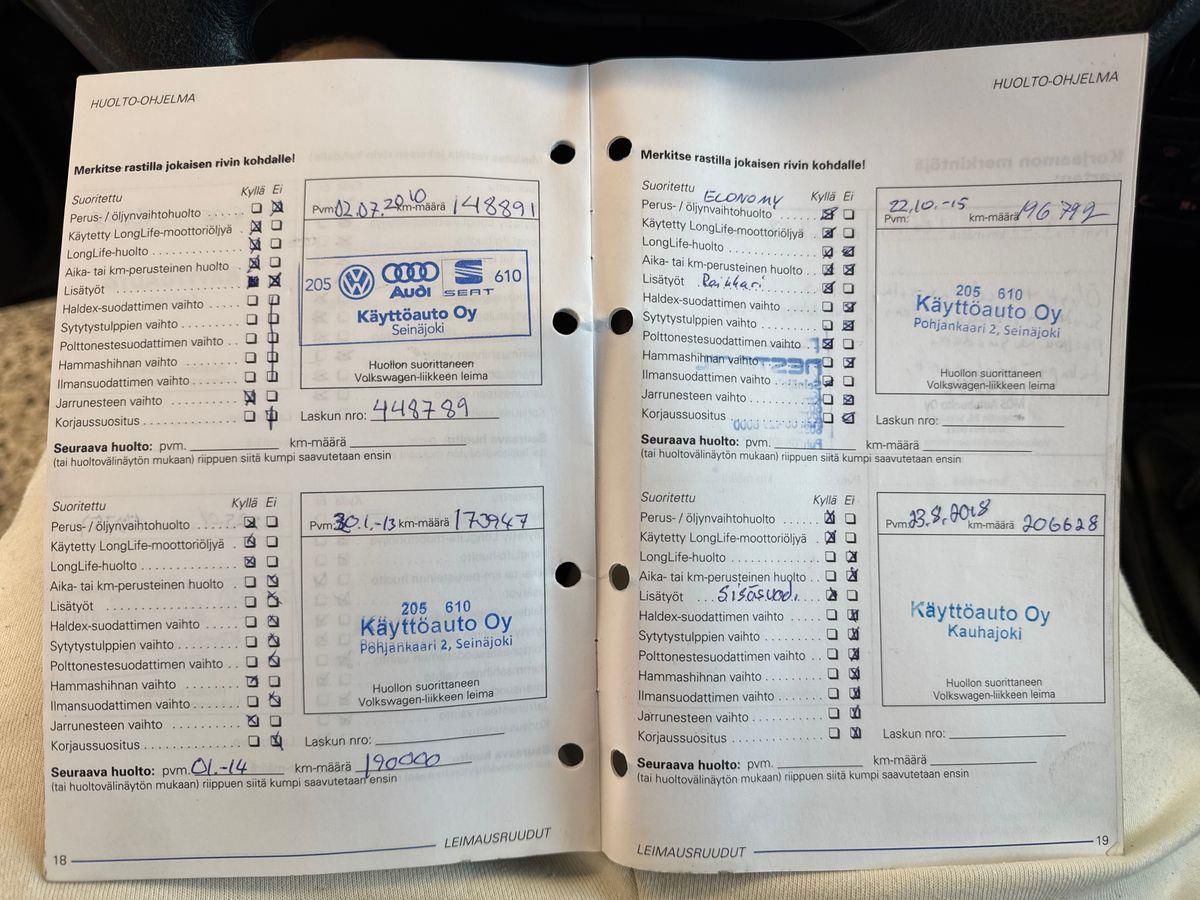 HUOLTO-OHJELMA
Merkitse rastilla jokaisen rivin kohdalle!
Suoritettu Kyllä Ei
Perus- / öljynvaihtohuolto
Käytetty LongLife-moottoriöljyä
LongLife-huolto
Aika- tai km-perusteinen huolto
Lisätyöt
Haldex-suodattimen vaihto
Sytytystulppien vaihto
Polttonestesuodattimen vaihto
Hammashihnan vaihto
Ilmansuodattimen vaihto
Jarrunesteen vaihto
Korjaussuositus
Pvm: 02.07.2010 km-määrä 148891
205 Audi SEAT 610
Käyttöauto Oy
Seinäjoki
Huollon suorittaneen
Volkswagen-liikkeen leima
Laskun nro: 448789
Seuraava huolto: pvm. km-määrä
(tai huoltovälinäytön mukaan) riippuen siitä kumpi saavutetaan ensin
Suoritettu Kyllä Ei
Perus- / öljynvaihtohuolto
Käytetty LongLife-moottoriöljyä
LongLife-huolto
Aika- tai km-perusteinen huolto
Lisätyöt
Haldex-suodattimen vaihto
Sytytystulppien vaihto
Polttonestesuodattimen vaihto
Hammashihnan vaihto
Ilmansuodattimen vaihto
Jarrunesteen vaihto
Korjaussuositus
Pvm: 30.1.-13 km-määrä 170947
205 610
Käyttöauto Oy
Pohjankaari 2, Seinäjoki
Huollon suorittaneen
Volkswagen-liikkeen leima
Laskun nro:
Seuraava huolto: pvm. 01.-14 km-määrä 190000
(tai huoltovälinäytön mukaan) riippuen siitä kumpi saavutetaan ensin
18 LEIMAUSRUUDUT
HUOLTO-OHJELMA
Merkitse rastilla jokaisen rivin kohdalle!
Suoritettu ECONOMY Kyllä Ei
Perus- / öljynvaihtohuolto
Käytetty LongLife-moottoriöljyä
LongLife-huolto
Aika- tai km-perusteinen huolto
Lisätyöt
Haldex-suodattimen vaihto
Sytytystulppien vaihto
Polttonestesuodattimen vaihto
Hammashihnan vaihto
Ilmansuodattimen vaihto
Jarrunesteen vaihto
Korjaussuositus
Pvm: 22.10.-15 km-määrä 196792
205 610
Käyttöauto Oy
Pohjankaari 2, Seinäjoki
Huollon suorittaneen
Volkswagen-liikkeen leima
Laskun nro:
Seuraava huolto: pvm. km-määrä
(tai huoltovälinäytön mukaan) riippuen siitä kumpi saavutetaan ensin
Suoritettu Kyllä Ei
Perus- / öljynvaihtohuolto
Käytetty LongLife-moottoriöljyä
LongLife-huolto
Aika- tai km-perusteinen huolto
Lisätyöt Sisäsuod.
Haldex-suodattimen vaihto
Sytytystulppien vaihto
Polttonestesuodattimen vaihto
Hammashihnan vaihto
Ilmansuodattimen vaihto
Jarrunesteen vaihto
Korjaussuositus
Pvm: 23.8.2018 km-määrä 206628
Käyttöauto Oy
Kauhajoki
Huollon suorittaneen
Volkswagen-liikkeen leima
Laskun nro:
Seuraava huolto: pvm. km-määrä
(tai huoltovälinäytön mukaan) riippuen siitä kumpi saavutetaan ensin
LEIMAUSRUUDUT 19